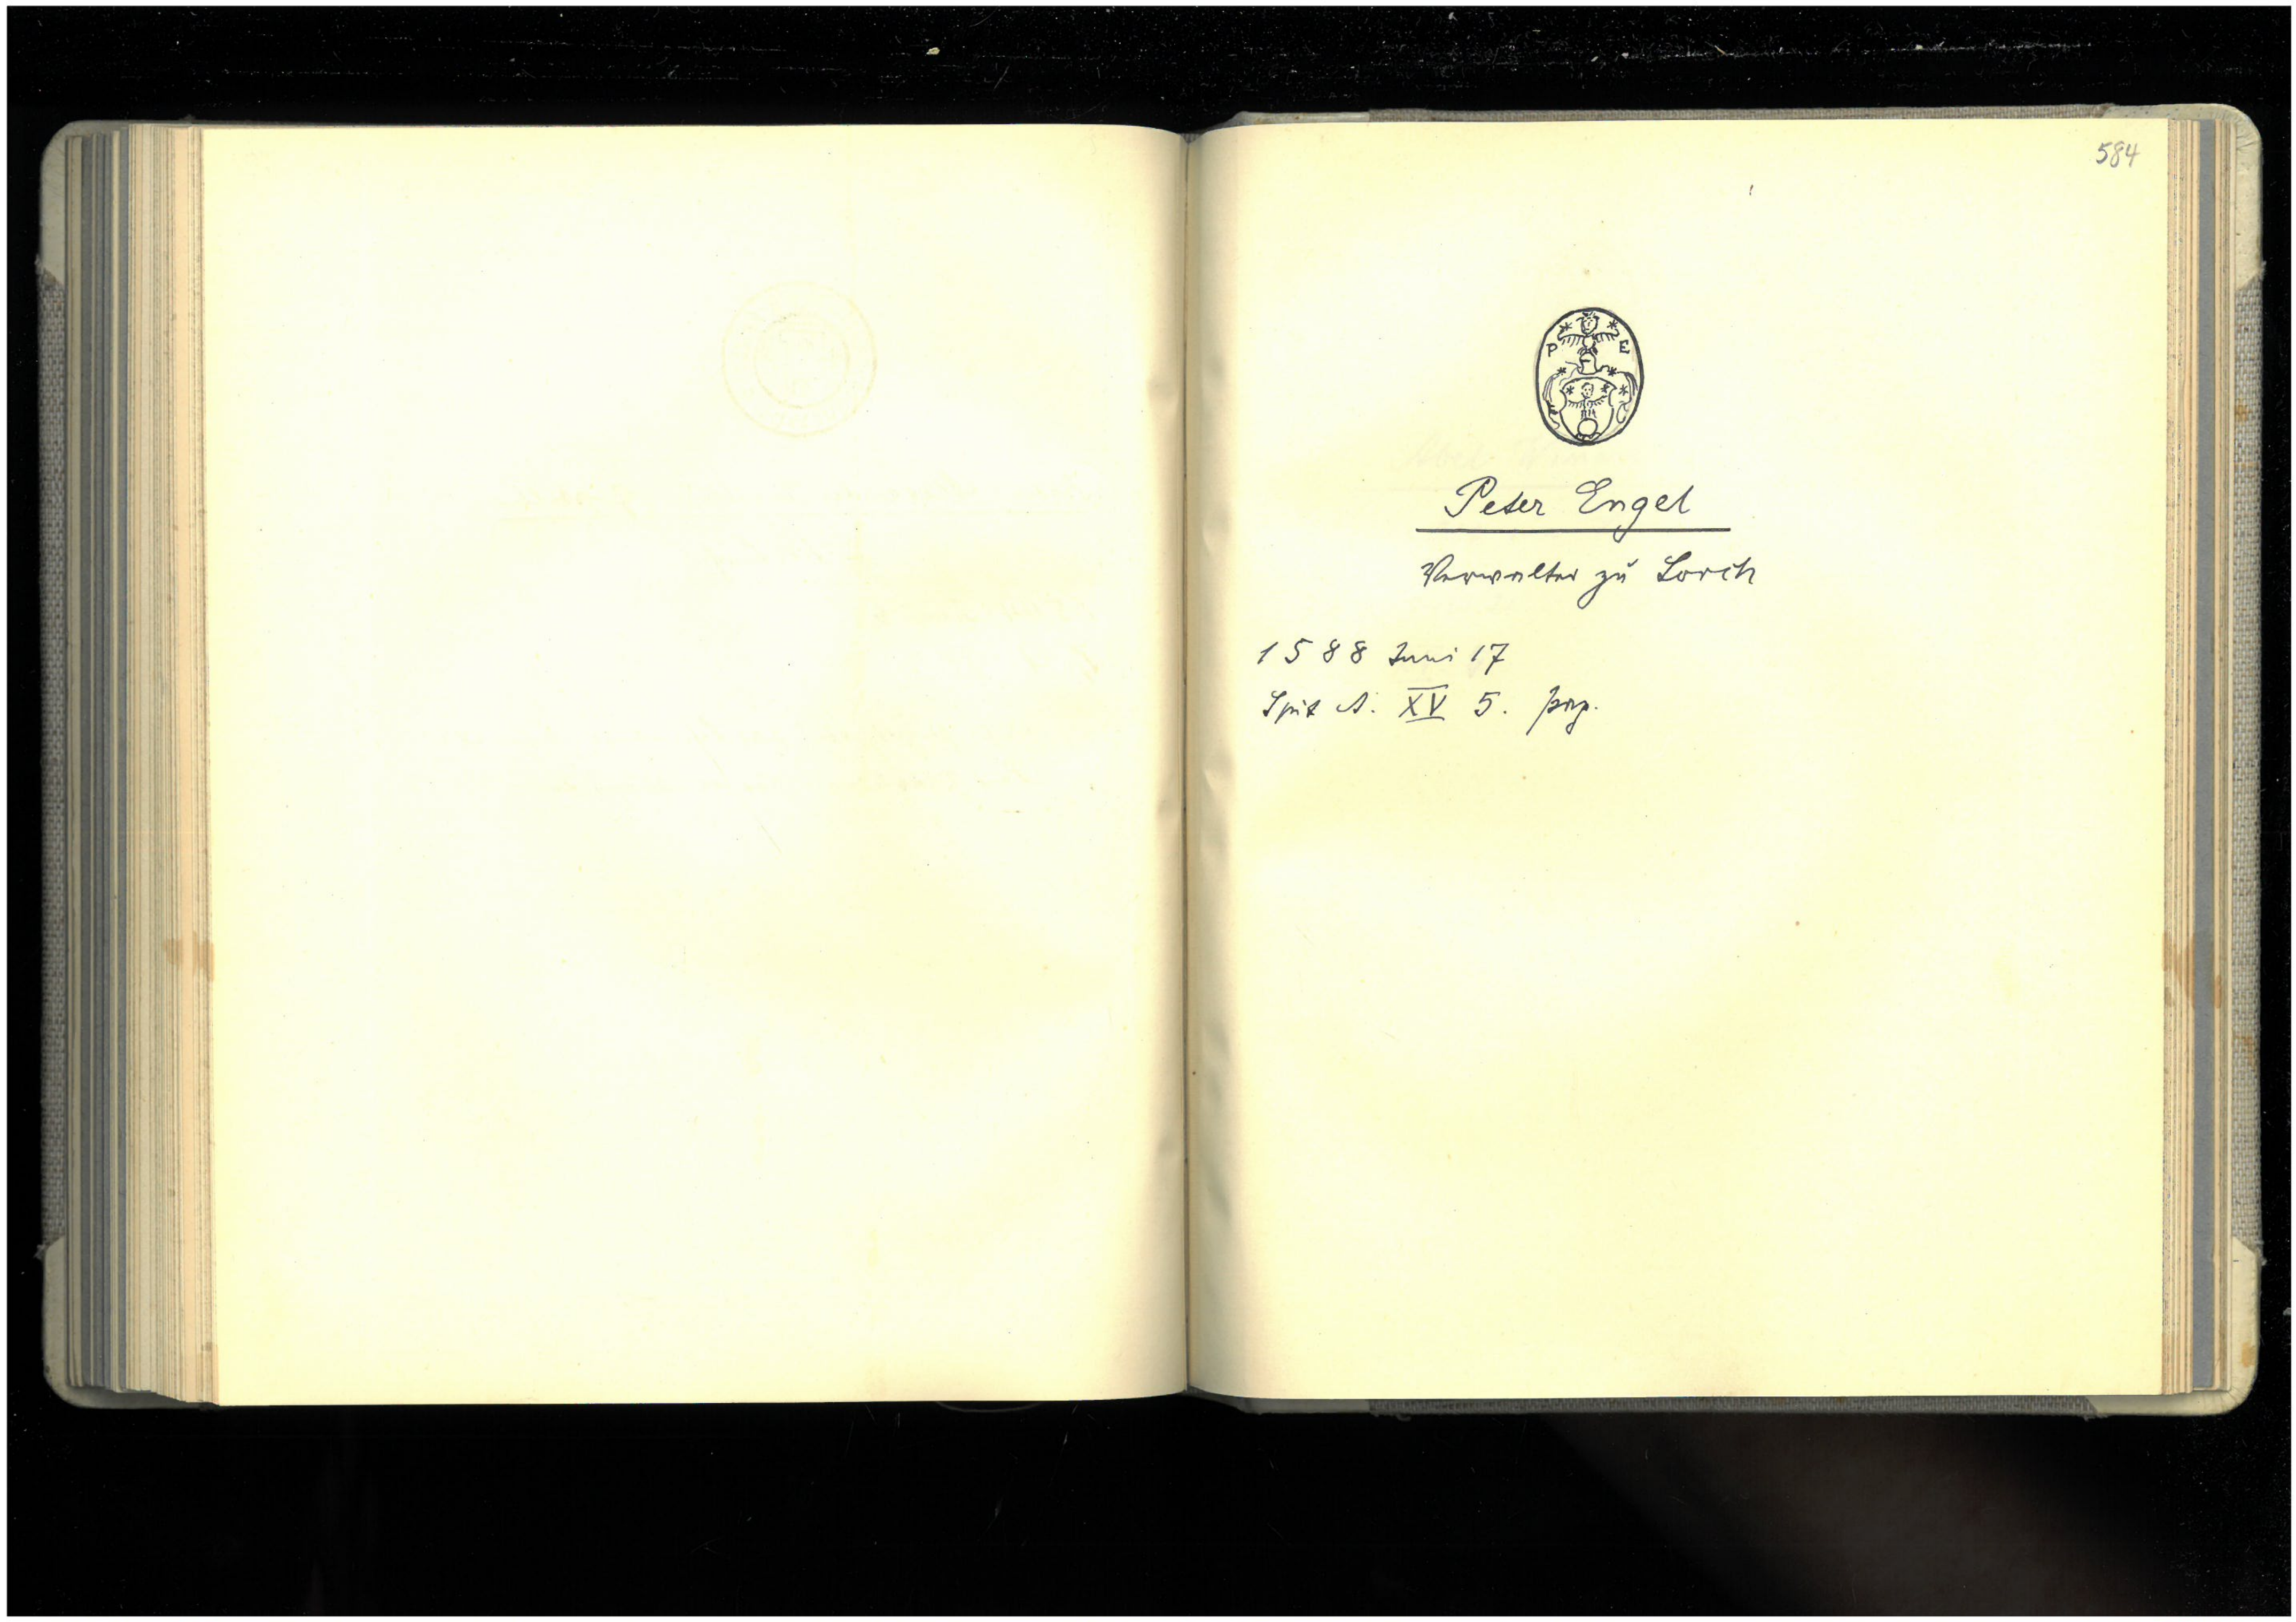 584
P E
Peter Engel
Verwalter zu Lorch
1588 Juni 17
Spit A. XV 5. pag.